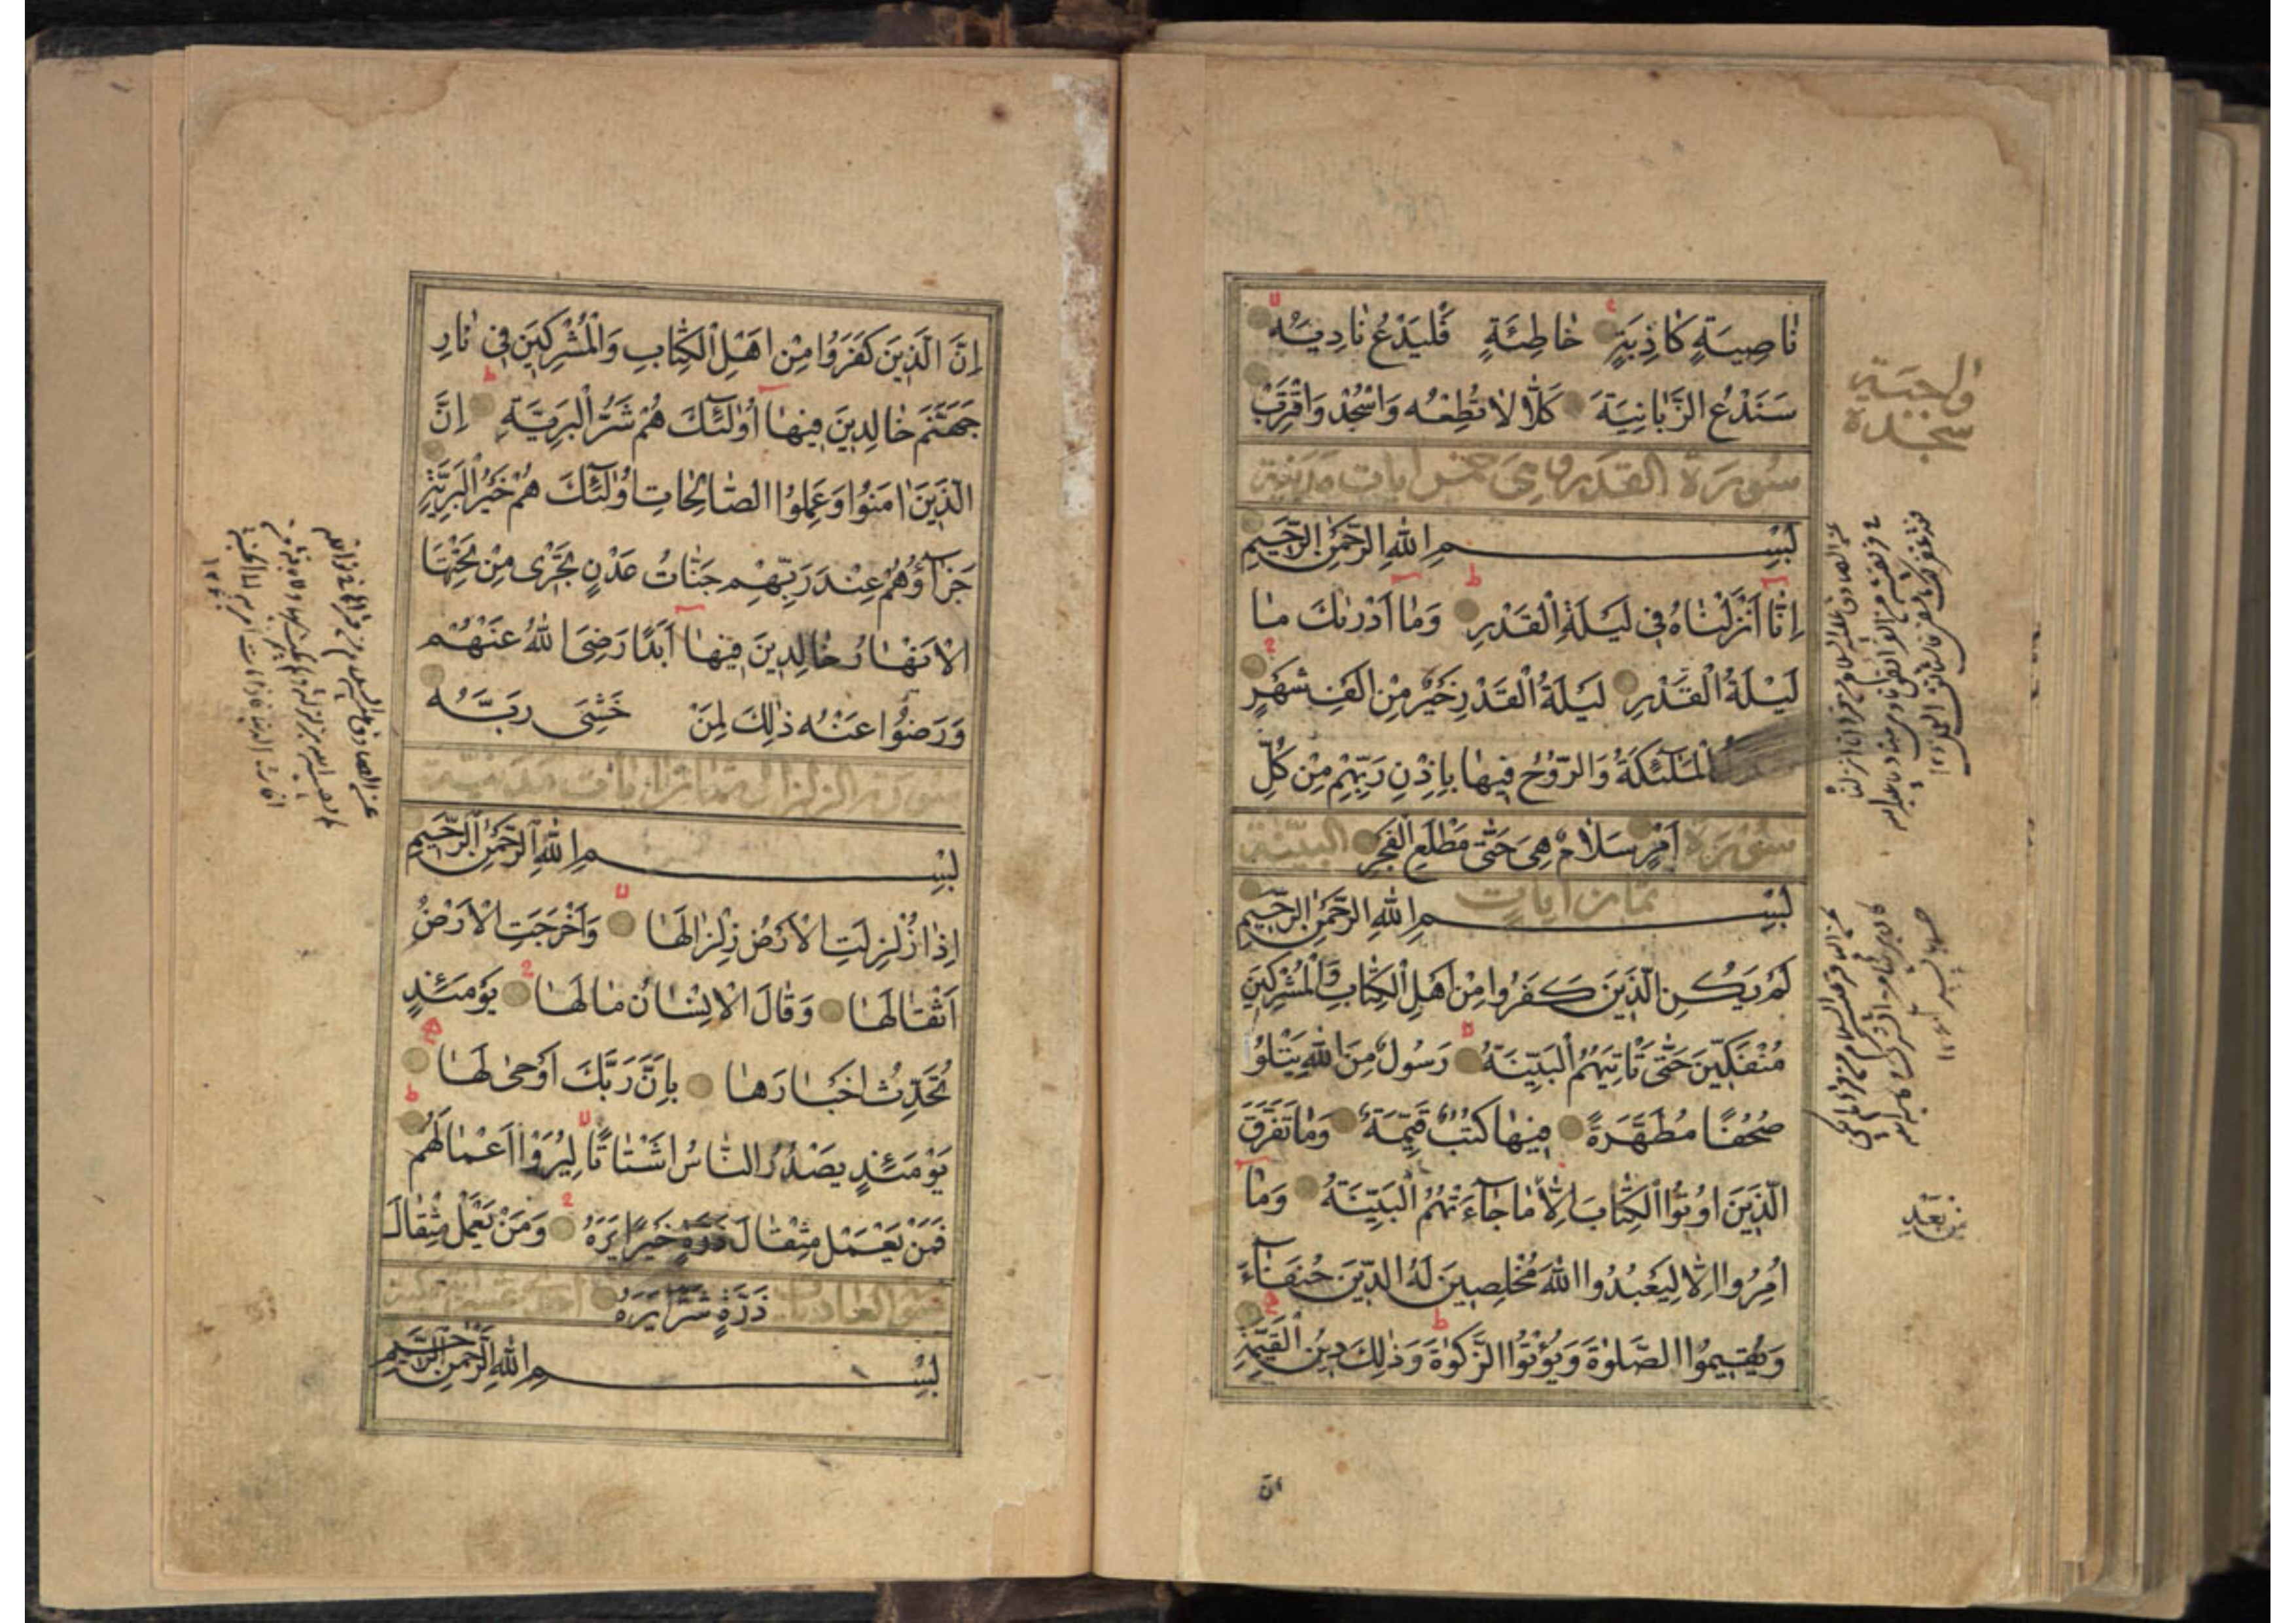 نَاصِيَةٍ كَاذِبَةٍ خَاطِئَةٍ فَلْيَدْعُ نَادِيَهُ
سَنَدْعُ الزَّبَانِيَةَ كَلَّا لَا تُطِعْهُ وَاسْجُدْ وَاقْتَرِبْ
سورة القدر وهي خمس ايات مدنية
بِسْمِ اللهِ الرَّحْمٰنِ الرَّحِيمِ
اِنَّا اَنْزَلْنَاهُ فِي لَيْلَةِ الْقَدْرِ وَمَا اَدْرٰيكَ مَا
لَيْلَةُ الْقَدْرِ لَيْلَةُ الْقَدْرِ خَيْرٌ مِنْ اَلْفِ شَهْرٍ
الْمَلٰٓئِكَةُ وَالرُّوحُ فِيهَا بِاِذْنِ رَبِّهِمْ مِنْ كُلِّ
سورة اَمْرٍ سَلَامٌ هِيَ حَتّٰى مَطْلَعِ الْفَجْرِ البينة
ثمان ايات
بِسْمِ اللهِ الرَّحْمٰنِ الرَّحِيمِ
لَمْ يَكُنِ الَّذِينَ كَفَرُوا مِنْ اَهْلِ الْكِتَابِ وَالْمُشْرِكِينَ
مُنْفَكِّينَ حَتّٰى تَاْتِيَهُمُ الْبَيِّنَةُ رَسُولٌ مِنَ اللهِ يَتْلُوا
صُحُفًا مُطَهَّرَةً فِيهَا كُتُبٌ قَيِّمَةٌ وَمَا تَفَرَّقَ
الَّذِينَ اُوتُوا الْكِتَابَ اِلَّا مَا جَآءَتْهُمُ الْبَيِّنَةُ وَمَا
اُمِرُوا اِلَّا لِيَعْبُدُوا اللهَ مُخْلِصِينَ لَهُ الدِّينَ حُنَفَآءَ
وَيُقِيمُوا الصَّلٰوةَ وَيُؤْتُوا الزَّكٰوةَ وَذٰلِكَ دِينُ الْقَيِّمَةِ
ان
سجدة
من بَعْدِ
اِنَّ الَّذِينَ كَفَرُوا مِنْ اَهْلِ الْكِتَابِ وَالْمُشْرِكِينَ فِي نَارِ
جَهَنَّمَ خَالِدِينَ فِيهَا اُولٰٓئِكَ هُمْ شَرُّ الْبَرِيَّةِ اِنَّ
الَّذِينَ اٰمَنُوا وَعَمِلُوا الصَّالِحَاتِ اُولٰٓئِكَ هُمْ خَيْرُ الْبَرِيَّةِ
جَزَآؤُهُمْ عِنْدَ رَبِّهِمْ جَنَّاتُ عَدْنٍ تَجْرِى مِنْ تَحْتِهَا
الْاَنْهَارُ خَالِدِينَ فِيهَا اَبَدًا رَضِىَ اللهُ عَنْهُمْ
وَرَضُوا عَنْهُ ذٰلِكَ لِمَنْ خَشِىَ رَبَّهُ
سورة الزلزال ثمان ايات مدنية
بِسْمِ اللهِ الرَّحْمٰنِ الرَّحِيمِ
اِذَا زُلْزِلَتِ الْاَرْضُ زِلْزَالَهَا وَاَخْرَجَتِ الْاَرْضُ
اَثْقَالَهَا وَقَالَ الْاِنْسَانُ مَا لَهَا يَوْمَئِذٍ
تُحَدِّثُ اَخْبَارَهَا بِاَنَّ رَبَّكَ اَوْحٰى لَهَا
يَوْمَئِذٍ يَصْدُرُ النَّاسُ اَشْتَاتًا لِيُرَوْا اَعْمَالَهُمْ
فَمَنْ يَعْمَلْ مِثْقَالَ ذَرَّةٍ خَيْرًا يَرَهُ وَمَنْ يَعْمَلْ مِثْقَالَ
العاديات ذَرَّةٍ شَرًّا يَرَهُ احد عشر
بِسْمِ اللهِ الرَّحْمٰنِ الرَّحِيمِ